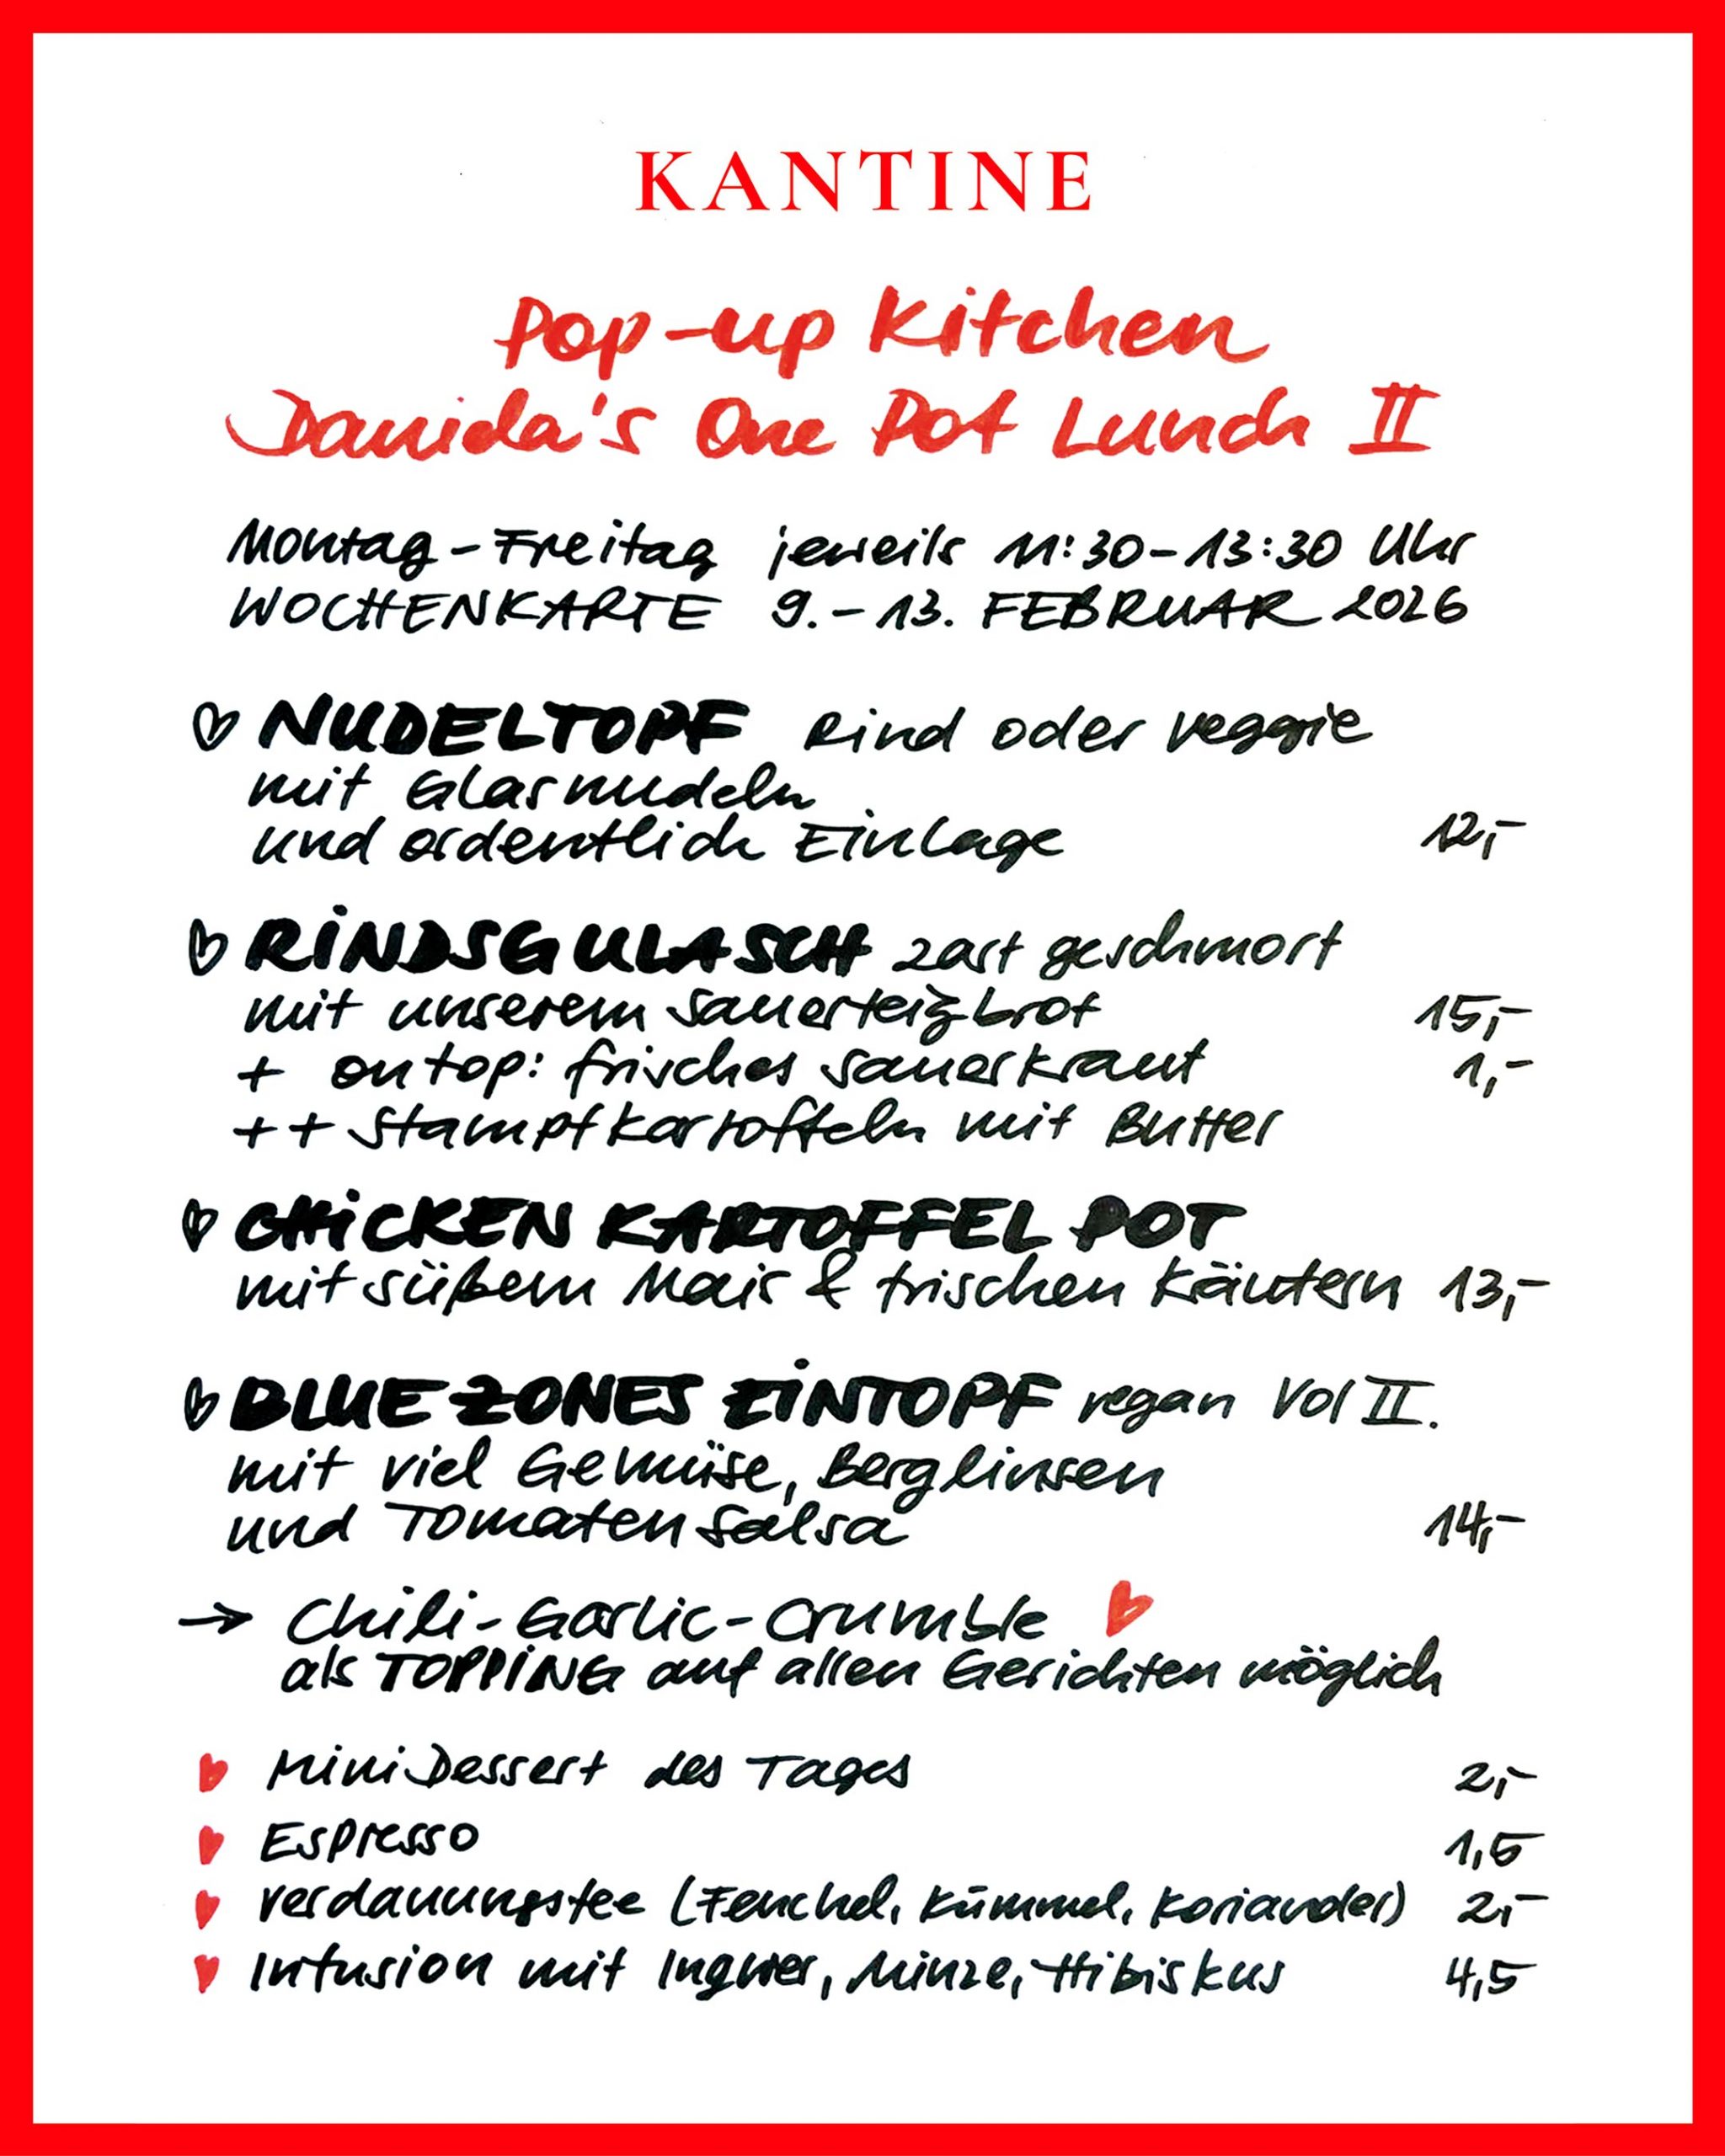 KANTINE
Pop-up Kitchen
Danida's One Pot Lunch II
Montag - Freitag jeweils 11:30 - 13:30 Uhr
WOCHENKARTE 9. - 13. FEBRUAR 2026
NUDELTOPF Rind oder veggie
mit Glasnudeln
und ordentlich Einlage 12,-
RINDSGULASCH zart geschmort
mit unserem Sauerteigbrot 15,-
+ on top: frisches Sauerkraut 1,-
++ Stampfkartoffeln mit Butter
CHICKEN KARTOFFEL POT
mit süßem Mais & frischen Kräutern 13,-
BLUE ZONES EINTOPF vegan Vol II.
mit viel Gemüse, Berglinsen
und Tomaten Salsa 14,-
→ Chili-Garlic-Crumble ♥
als TOPPING auf allen Gerichten möglich
♥ Mini Dessert des Tages 2,-
♥ Espresso 1,5
♥ Verdauungstee (Fenchel, Kümmel, Koriander) 2,-
♥ Infusion mit Ingwer, Minze, Hibiskus 4,5